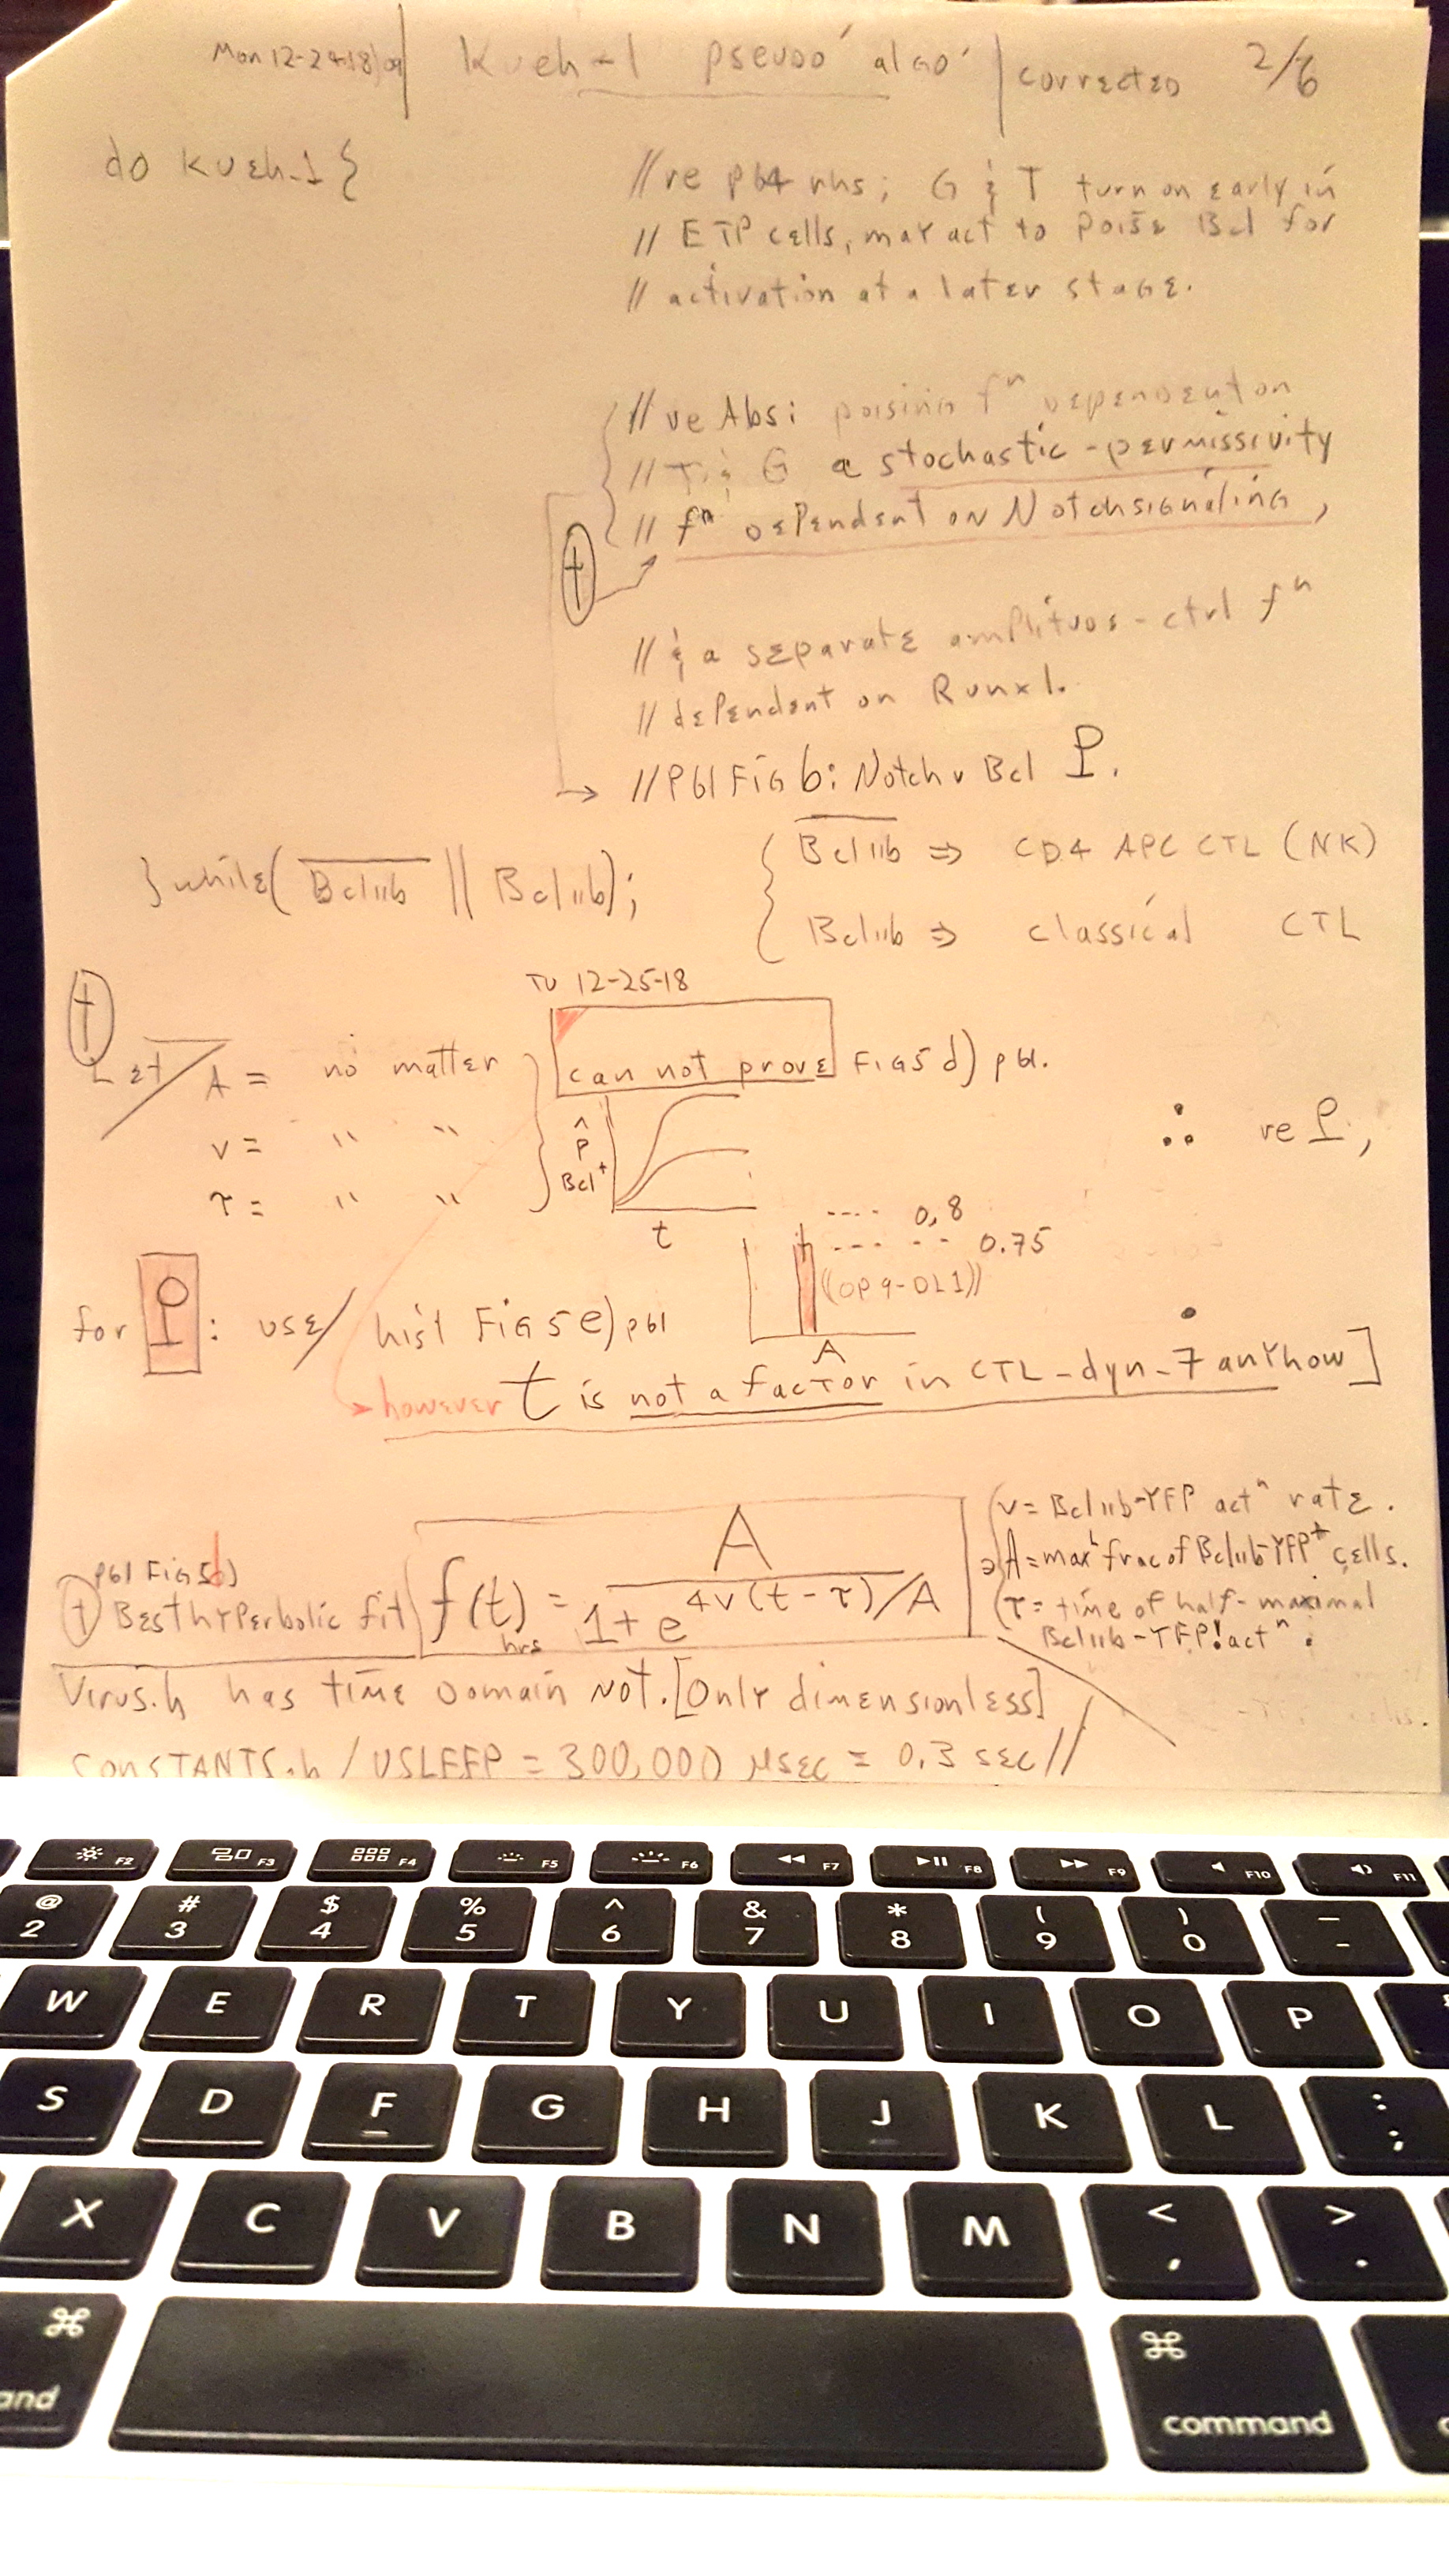 Mon 12-24-18 | Kueh-1 pseudo' algo' | corrected 2/6
do kueh-1 {
//re p64 rhs; G & T turn on early in
// ETP cells, may act to poise Bcl for
// activation at a later stage.
//re Abs: poising fⁿ dependent on
// T & G a stochastic-permissivity
// fⁿ dependent on Notch signaling,
†
// & a separate amplitude-ctrl fⁿ
// dependent on Runx1.
//P61 Fig 6: Notch v Bcl P.
} while( Bcl11b || Bcl11b);
Bcl11b ⇒ CD4 APC CTL (NK)
Bcl11b ⇒ classical CTL
†
TU 12-25-18
Let A = no matter
can not prove Fig 5 d) p61.
v = " "
τ = " "
p̂ Bcl⁺
t
∴ re P,
---- 0.8
---- 0.75
((OP9-DL1))
A
for P: use/ hist Fig 5 e) p61
however t is not a factor in CTL-dyn-7 anyhow]
p61 Fig 5d)
† Best hyperbolic fit
f(t) = A / 1 + e 4v(t-τ)/A
hrs
v = Bcl11b-YFP actⁿ rate.
A = max'l frac of Bcl11b-YFP⁺ cells.
τ = time of half-maximal
Bcl11b-YFP! actⁿ.
Virus.h has time domain NOT. [Only dimensionless]
CONSTANTS.h / USLEEP = 300,000 μsec = 0.3 sec//
F2 F3 F4 F5 F6 F7 F8 F9 F10 F11
@ # $ % ^ & * ( ) —
2 3 4 5 6 7 8 9 0 -
W E R T Y U I O P
S D F G H J K L : ;
X C V B N M < , > .
⌘ ⌘
and command